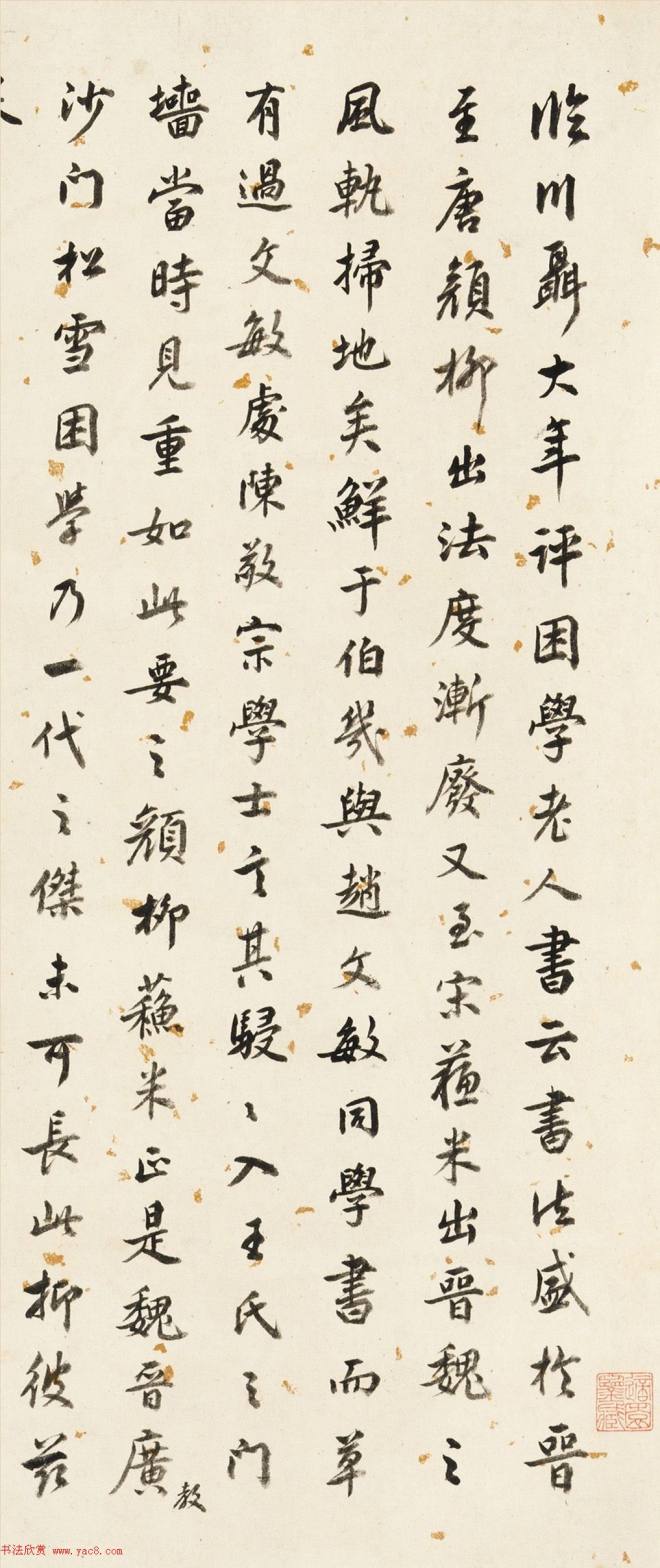 臨川聶大年評困學老人書云書法盛於晉
至唐顏柳出法度漸廢又至宋蘇米出晉魏之
風軌掃地矣鮮于伯幾與趙文敏同學書而草
有過文敏處陳敬宗學士言其駸〻入王氏之門
墻當時見重如此要之顏柳蘇米正是魏晉廣
教
沙门松雪困學乃一代之傑未可長此抑彼茲
书法欣赏 www.yac8.com